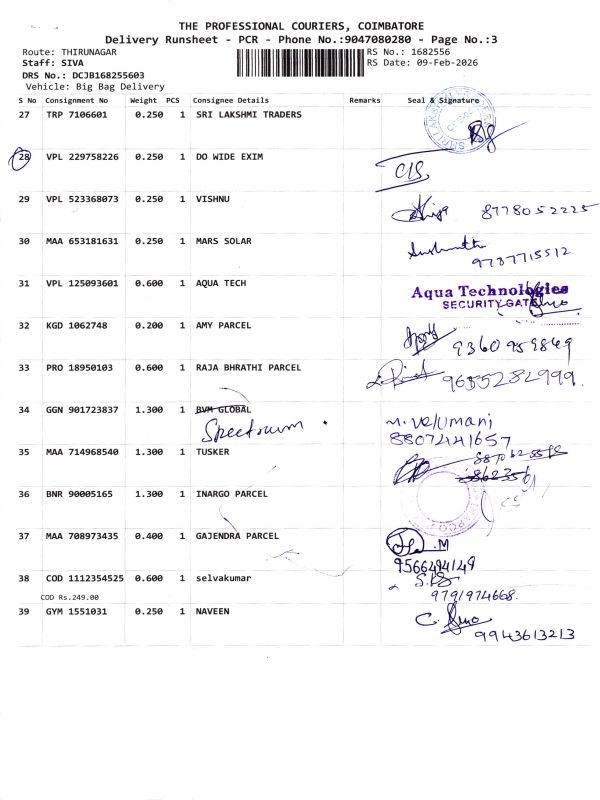 THE PROFESSIONAL COURIERS, COIMBATORE
Delivery Runsheet - PCR - Phone No.:9047080280 - Page No.:3
Route: THIRUNAGAR RS No.: 1682556
Staff: SIVA RS Date: 09-Feb-2026
DRS No.: DCJB168255603
Vehicle: Big Bag Delivery
S No Consignment No Weight PCS Consignee Details Remarks Seal & Signature
27 TRP 7106601 0.250 1 SRI LAKSHMI TRADERS
28 VPL 229758226 0.250 1 DO WIDE EXIM
29 VPL 523368073 0.250 1 VISHNU 8778052225
30 MAA 653181631 0.250 1 MARS SOLAR
9787715512
31 VPL 125093601 0.600 1 AQUA TECH Aqua Technologies
SECURITY GATE
32 KGD 1062748 0.200 1 AMY PARCEL
9360959849
33 PRO 18950103 0.600 1 RAJA BHRATHI PARCEL 9655282999
34 GGN 901723837 1.300 1 BVM GLOBAL
Spectrum
M. Velumani
8807441657
35 MAA 714968540 1.300 1 TUSKER
36 BNR 90005165 1.300 1 INARGO PARCEL
37 MAA 708973435 0.400 1 GAJENDRA PARCEL
9566494149
38 COD 1112354525 0.600 1 selvakumar
COD Rs.249.00 9791974668
39 GYM 1551031 0.250 1 NAVEEN
9943613213